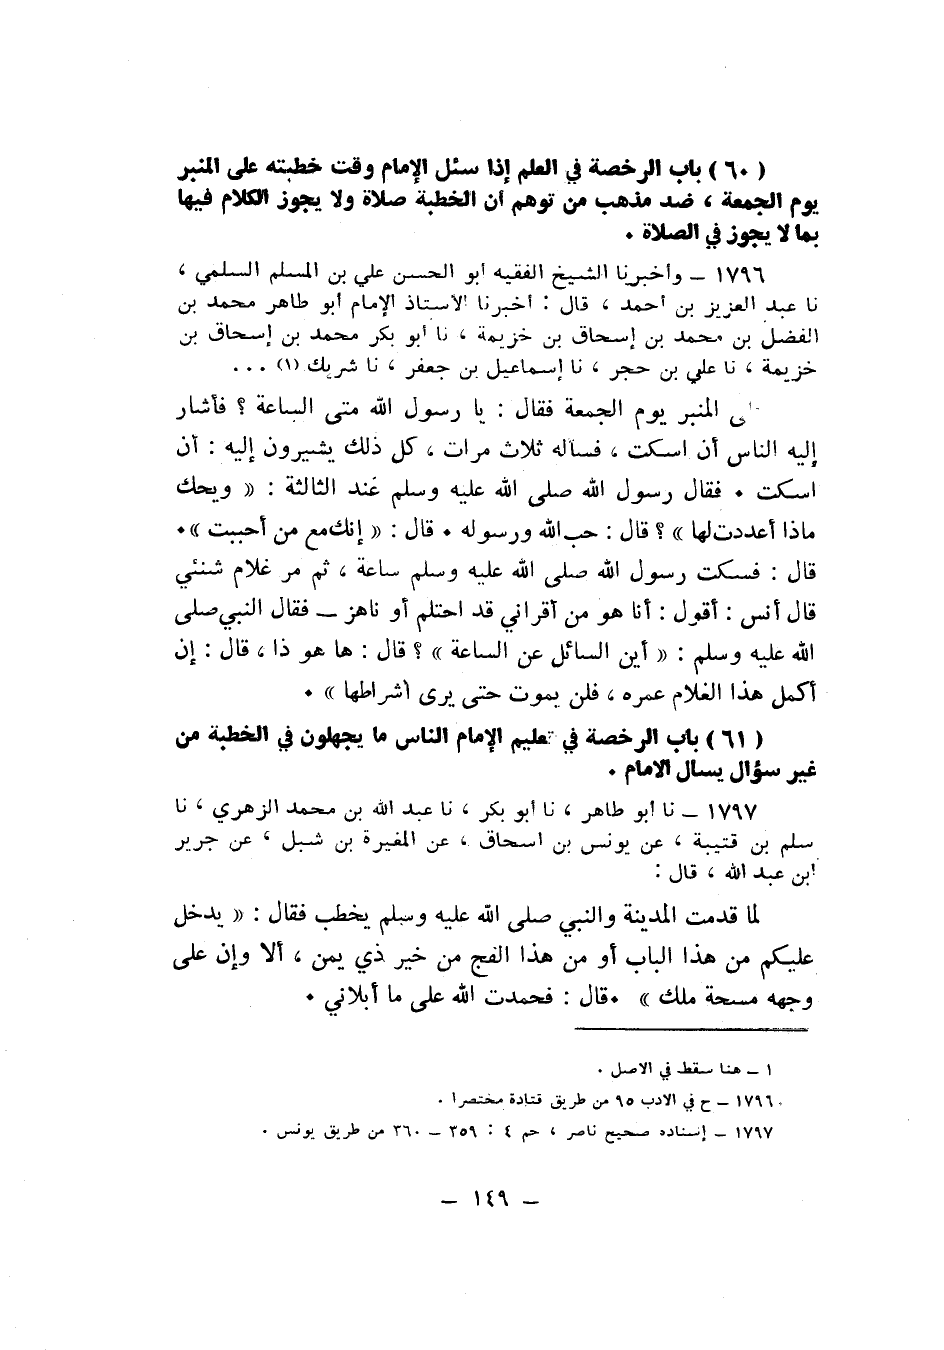 ( ٦٠ ) باب الرخصة في العلم إذا سئل الإمام وقت خطبته على المنبر
يوم الجمعة ، ضد مذهب من توهم أن الخطبة صلاة ولا يجوز الكلام فيها
بما لا يجوز في الصلاة .
١٧٩٦ – وأخبرنا الشيخ الفقيه أبو الحسن علي بن المسلم السلمي ،
نا عبد العزيز بن أحمد ، قال : أخبرنا الاستاذ الإمام أبو طاهر محمد بن
الفضل بن محمد بن إسحاق بن خزيمة ، نا أبو بكر محمد بن إسحاق بن
خزيمة ، نا علي بن حجر ، نا إسماعيل بن جعفر ، نا شريك (١) ...
المنبر يوم الجمعة فقال : يا رسول الله متى الساعة ؟ فأشار
إليه الناس أن اسكت ، فسأله ثلاث مرات ، كل ذلك يشيرون إليه : أن
اسكت . فقال رسول الله صلى الله عليه وسلم عند الثالثة : « ويحك
ماذا أعددت لها » ؟ قال : حب الله ورسوله . قال : « إنك مع من أحببت » .
قال : فسكت رسول الله صلى الله عليه وسلم ساعة ، ثم مر غلام شنئي
قال أنس : أقول : أنا هو من أقراني قد احتلم أو ناهز – فقال النبي صلى
الله عليه وسلم : « أين السائل عن الساعة » ؟ قال : ها هو ذا ، قال : إن
أكمل هذا الغلام عمره ، فلن يموت حتى يرى أشراطها » .
( ٦١ ) باب الرخصة في تعليم الإمام الناس ما يجهلون في الخطبة من
غير سؤال يسال الامام .
١٧٩٧ – نا أبو طاهر ، نا أبو بكر ، نا عبد الله بن محمد الزهري ، نا
سلم بن قتيبة ، عن يونس بن اسحاق ، عن المغيرة بن شبل ، عن جرير
ابن عبد الله ، قال :
لما قدمت المدينة والنبي صلى الله عليه وسلم يخطب فقال : « يدخل
عليكم من هذا الباب أو من هذا الفج من خير ذي يمن ، ألا وإن على
وجهه مسحة ملك » . قال : فحمدت الله على ما أبلاني .
١ – هنا سقط في الاصل .
١٧٩٦ – خ في الادب ٩٥ من طريق قتادة مختصرا .
١٧٩٧ – إسناده صحيح ناصر ، حم ٤ : ٣٥٩ – ٣٦٠ من طريق يونس .
– ١٤٩ –